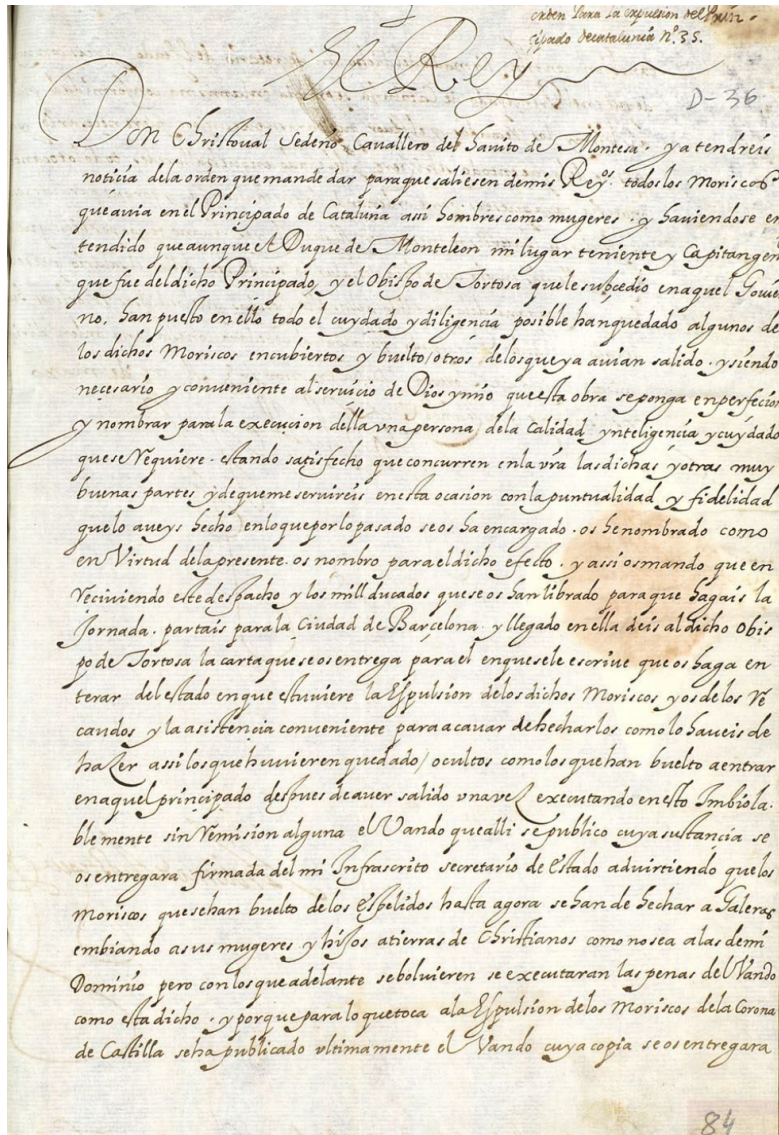 orden para la expulsion del Prin-
cipado de catalunia N.º 35.
El Rey
D-36
Don Christoual Sedeño Cavallero del havito de Montesa. ya tendreis
noticia dela orden que mande dar para que saliesen de mis Rey.os todos los Moriscos
que avia en el Principado de Cataluña assi hombres como mugeres. y haviendose en
tendido que aunque el Duque de Monteleon mi lugar teniente y Capitan gen
que fue del dicho Principado, y el Obispo de Tortosa que le subçedio en aquel Gouier
no, han puesto en ello todo el cuydado y diligencia posible han quedado algunos de
los dichos Moriscos encubiertos y buelto/otros delos que ya avian salido. y siendo
necesario y conveniente al servicio de Dios y mio que esta obra se ponga en perfecion
y nombrar para la execucion della vna persona dela calidad ynteligencia y cuydado
que se Requiere. estando satisfecho que concurren en la vra las dichas y otras muy
buenas partes y de que me servireis en esta ocasion con la puntualidad y fidelidad
que lo aveys hecho en lo que por lo pasado se os ha encargado. os he nombrado como
en Virtud dela presente os nombro para el dicho efecto. y assi os mando que en
Reciviendo este despacho y los mill ducados que se os han librado para que hagais la
Jornada. partais para la Ciudad de Barcelona. y llegado en ella deis al dicho Obis
po de Tortosa la carta que se os entrega para el en que se le escrive que os haga en
terar del estado en que estuviere la Espulsion delos dichos Moriscos y os de los Re
caudos y la asistencia conveniente para acavar de hecharlos como lo haveis de
haZer assi los que huvieren quedado/ocultos como los que han buelto a entrar
en aquel principado despues de aver salido vna veZ executando en esto Imbiola.
blemente sin Remision alguna el Vando que alli se publico cuya sustancia se
os entregara firmada del mi Infrascrito secretario de Estado advirtiendo que los
Moriscos que se han buelto de los Espelidos hasta agora se han de hechar a Galeras
embiando a sus mugeres y hijos a tierras de Christianos como no sea a las de mi
Dominio pero con los que adelante se bolvieren se executaran las penas del Vando
como esta dicho. y porque para lo que toca a la Espulsion delos Moriscos dela Corona
de Castilla se ha publicado vltimamente el Vando cuya copia se os entregara
84